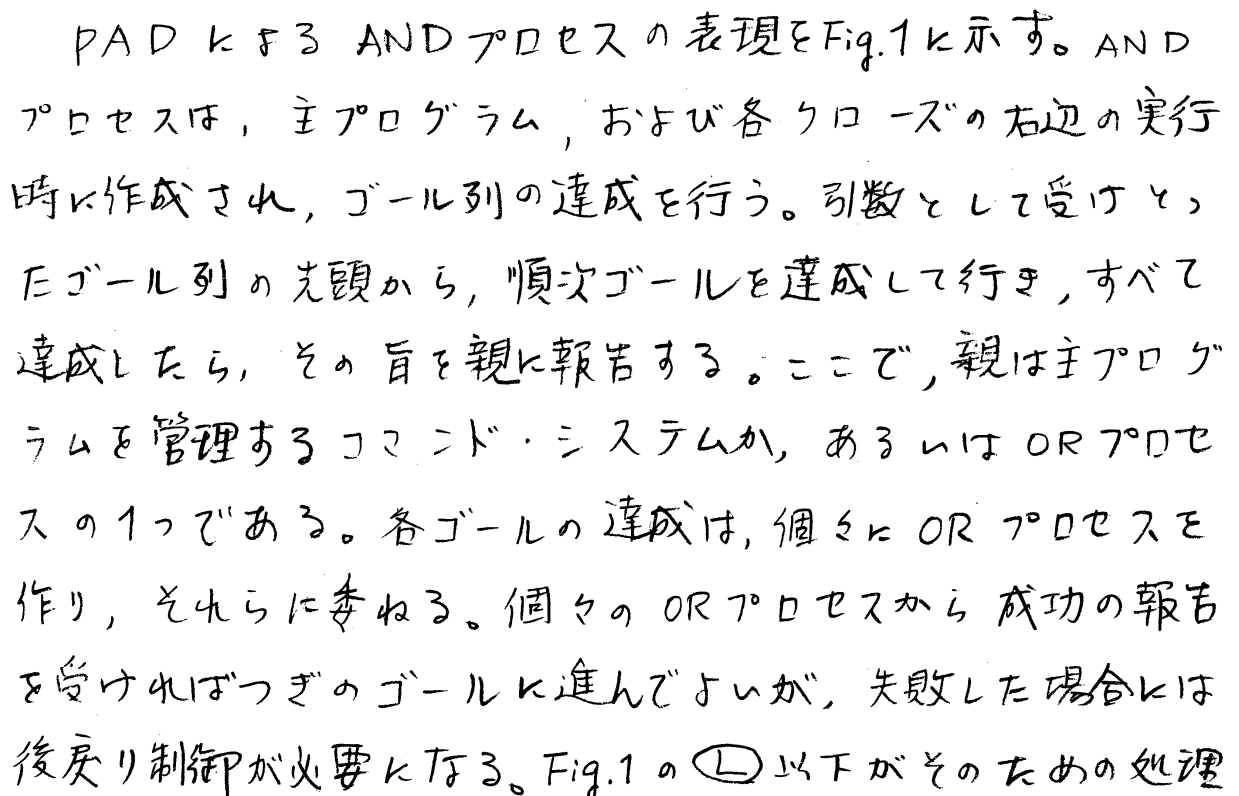 PADによるANDプロセスの表現をFig.1に示す。AND
プロセスは，主プログラム，および各クローズの右辺の実行
時に作成され，ゴール列の達成を行う。引数として受けとっ
たゴール列の先頭から，順次ゴールを達成して行き，すべて
達成したら，その旨を親に報告する。ここで，親は主プログ
ラムを管理するコマンド・システムか，あるいはORプロセ
スの1つである。各ゴールの達成は，個々にORプロセスを
作り，それらに委ねる。個々のORプロセスから成功の報告
を受ければつぎのゴールに進んでよいが，失敗した場合には
後戻り制御が必要になる。Fig.1のⓁ以下がそのための処理